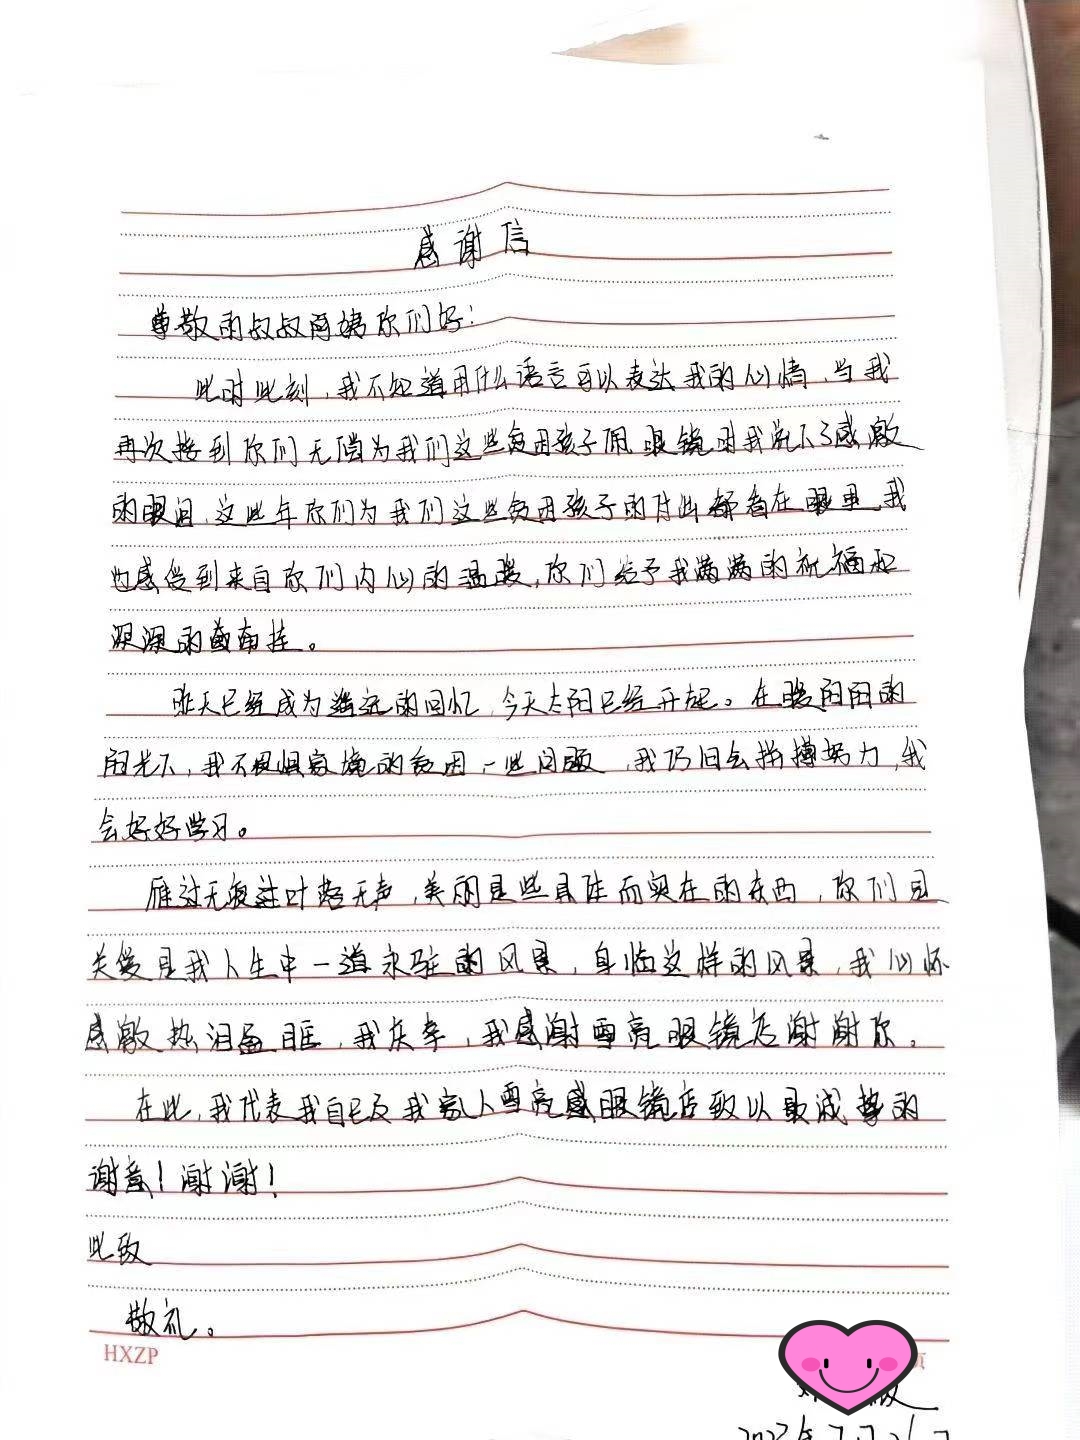 感谢信
尊敬的叔叔阿姨你们好:
此时此刻,我不知道用什么语言可以表达我的心情,当我
再次接到你们无偿为我们这些贫困孩子佩眼镜时我说不了感激
的眼泪,这些年你们为我们这些贫困孩子的付出都看在眼里,我
也感受到来自你们内心的温暖,你们给予我满满的祝福和
深深的牵挂。
昨天已经成为遥远的回忆,今天太阳已经升起。在暖阳阳的
阳光下,我不畏惧家境的贫困一些问题,我仍旧会拼搏努力,我
会好好学习。
雁过无痕叶落无声,美丽是些具体而实在的东西,你们
关爱是我人生中一道永驻的风景,身临这样的风景,我心怀
感激热泪盈眶,我庆幸,我感谢雪亮眼镜店谢谢你。
在此,我代表我自己及我家人雪亮眼镜店致以最诚挚的
谢意!谢谢!
此致
敬礼。
HXZP
页